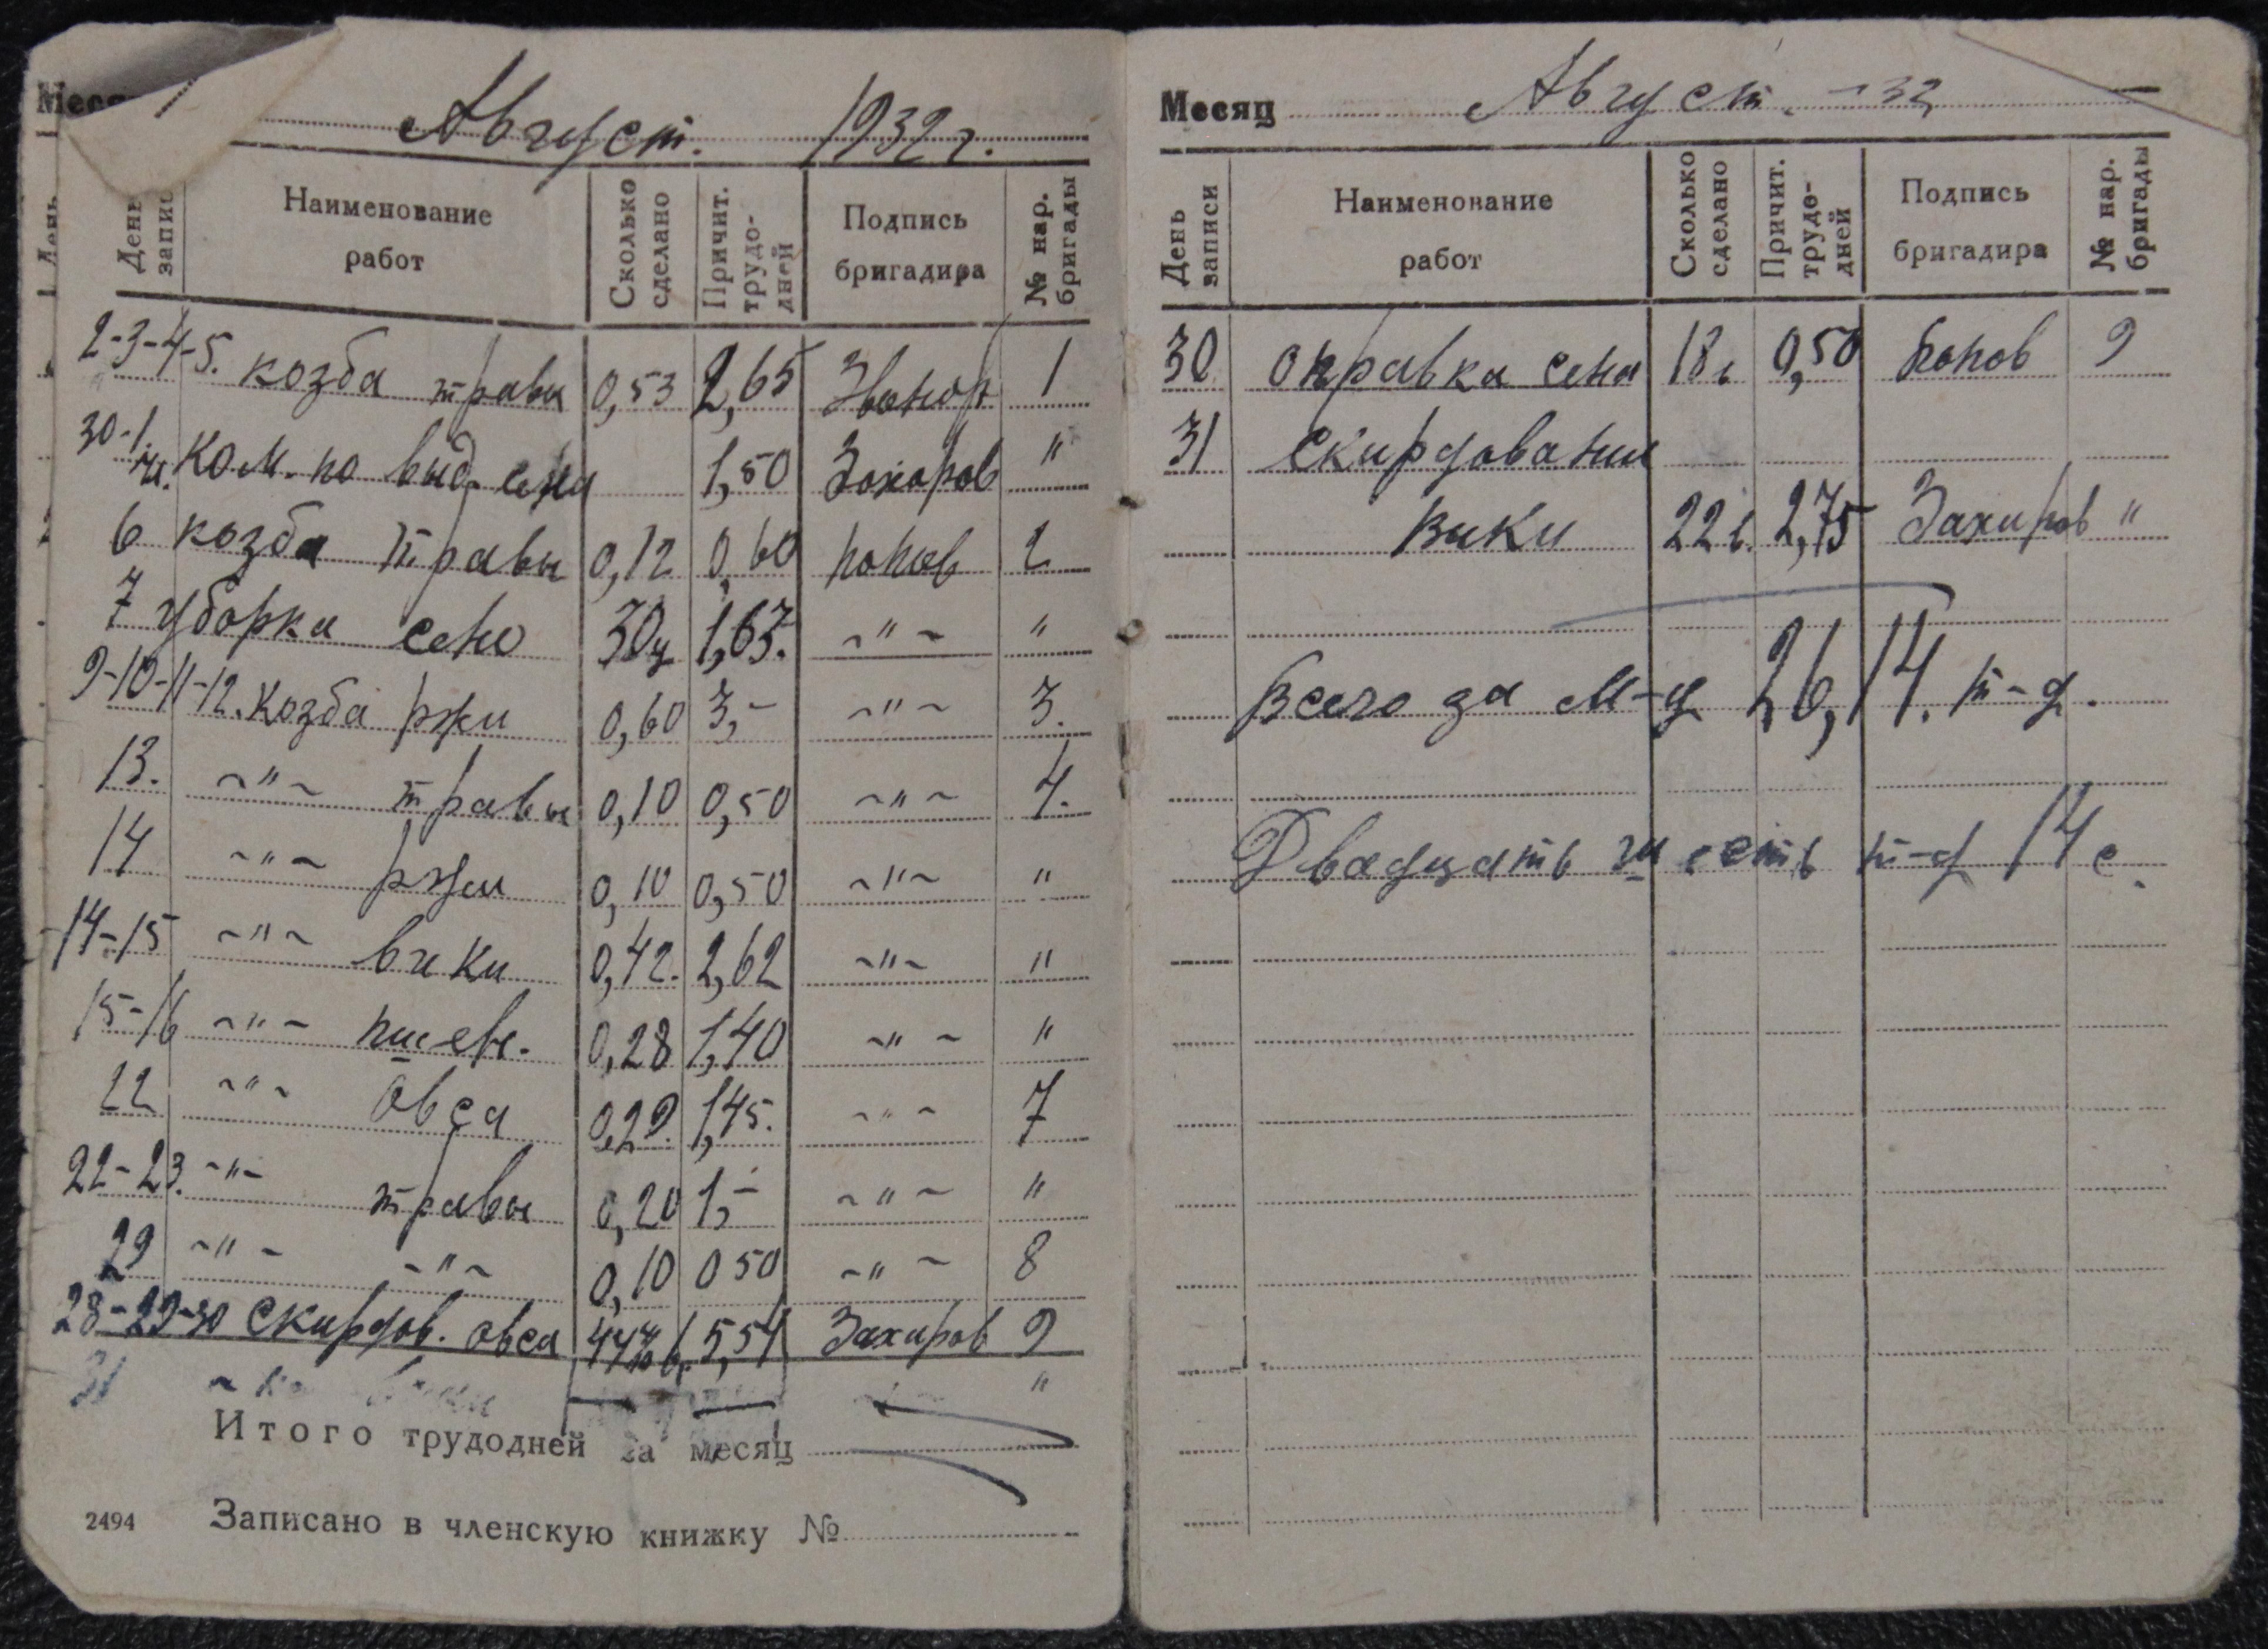 Август. 1932 г.
День записи Наименование работ Сколько сделано Причит. трудо-дней Подпись бригадира № нар. бригады
2-3-4-5. козба травы 0,53 2,65 1
30-1. Ком. по выд. сена 1,50 Захаров "
6 козба травы 0,12 0,60 Попов 2
7 уборка сено 30ц 1,63. ~"~ "
9-10-11-12. Козба ржи 0,60 3,- ~"~ 3.
13. ~"~ травы 0,10 0,50 ~"~ 4.
14 ~"~ ржи 0,10 0,50 ~"~ "
14-15 ~"~ вики 0,42. 2,62 ~"~ "
15-16 ~"~ пшен. 0,28 1,40 ~"~ "
22 ~"~ овса 0,29. 1,45. ~"~ 7
22-23. ~"~ травы 0,20 1,- ~"~ "
29 ~"~ ~"~ 0,10 0 50 ~"~ 8
28-29-30 скирдов. овса 5,54 Захаров 9
31 "
Итого трудодней за месяц
2494 Записано в членскую книжку №
Месяц Август. - 32
День записи Наименование работ Сколько сделано Причит. трудо-дней Подпись бригадира № нар. бригады
30 оправка сена 18 0,50 Попов 9
31 скирдования
вики 22 2,75 Захаров "
Всего за м-ц 26,14. т-д.
Двадцать шесть т-д 14 с.